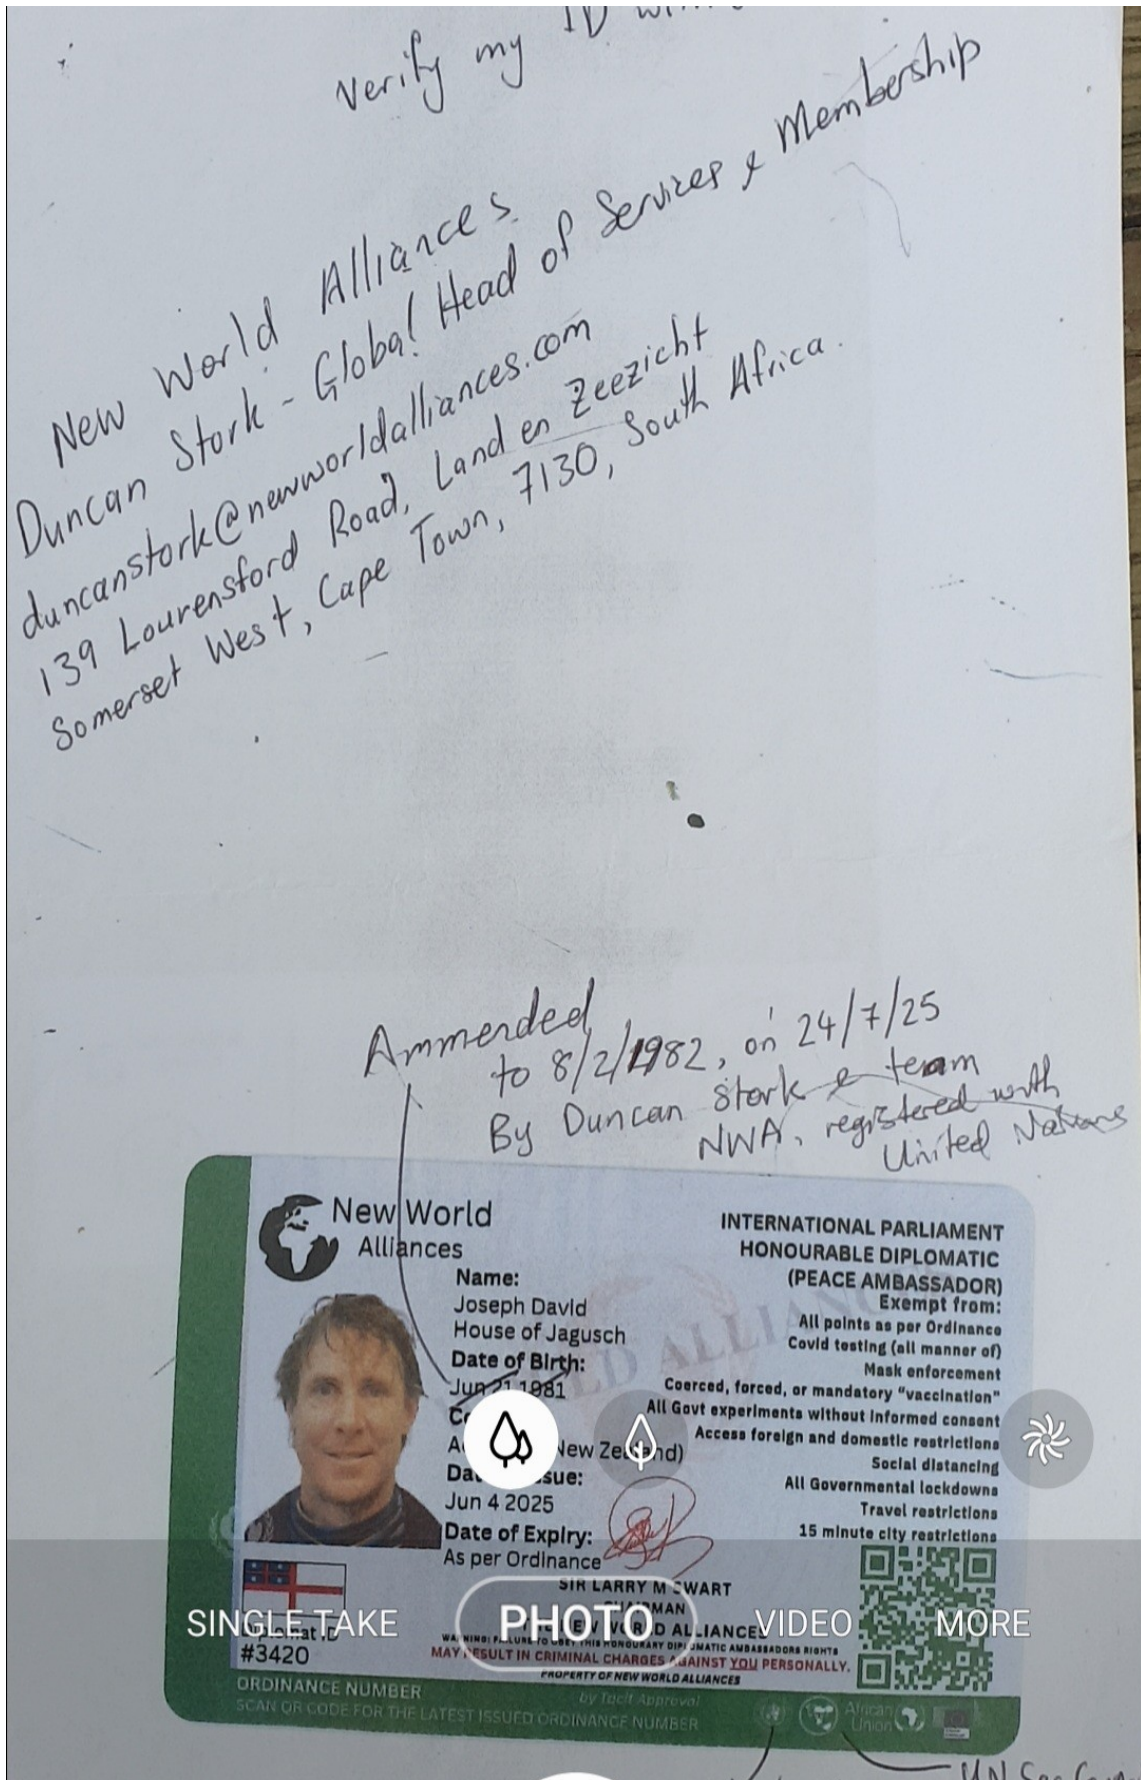 Verify my ID
New World Alliances
Duncan Stork - Global Head of Services & Membership
duncanstork@newworldalliances.com
139 Lourensford Road, Land en Zeezicht
Somerset West, Cape Town, 7130, South Africa.
Ammended
to 8/2/1982, on 24/7/25
By Duncan Stork & team
NWA, registered with
United Nations
New World
Alliances
Name:
Joseph David
House of Jagusch
Date of Birth:
Jun 21 1981
New Zealand)
Jun 4 2025
Date of Expiry:
As per Ordinance
INTERNATIONAL PARLIAMENT
HONOURABLE DIPLOMATIC
(PEACE AMBASSADOR)
Exempt from:
All points as per Ordinance
Covid testing (all manner of)
Mask enforcement
Coerced, forced, or mandatory “vaccination”
All Govt experiments without informed consent
Access foreign and domestic restrictions
Social distancing
All Governmental lockdowns
Travel restrictions
15 minute city restrictions
SIR LARRY M SWART
CHAIRMAN
NEW WORLD ALLIANCES
WARNING! FAILURE TO OBEY THIS HONOURARY DIPLOMATIC AMBASSADORS RIGHTS
MAY RESULT IN CRIMINAL CHARGES AGAINST YOU PERSONALLY.
PROPERTY OF NEW WORLD ALLIANCES
SINGLE TAKE
PHOTO
VIDEO
MORE
ID
#3420
ORDINANCE NUMBER
by Tacit Approval
SCAN QR CODE FOR THE LATEST ISSUED ORDINANCE NUMBER
African
Union